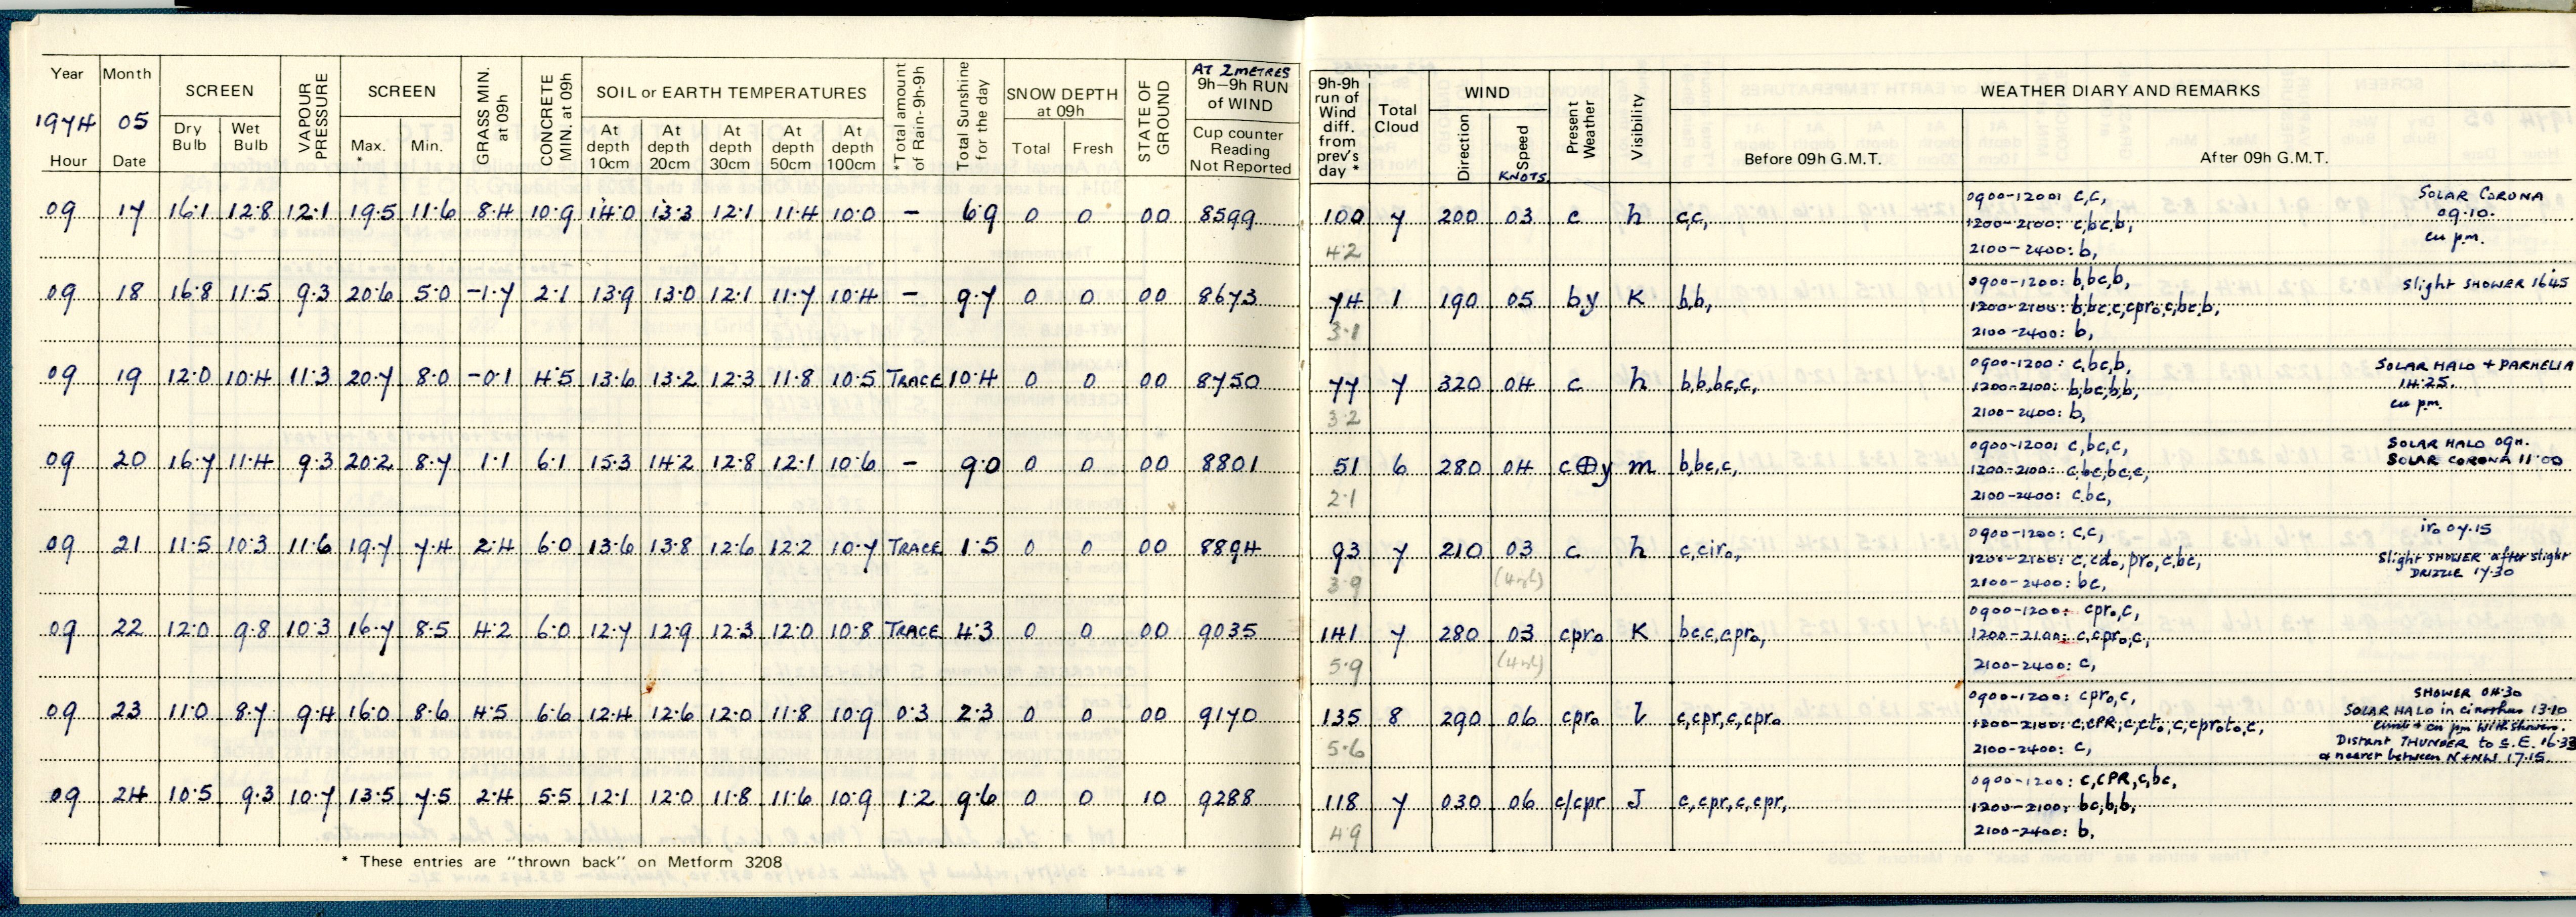 Year Month SCREEN VAPOUR PRESSURE SCREEN GRASS MIN. at 09h CONCRETE MIN. at 09h SOIL or EARTH TEMPERATURES *Total amount of Rain-9h-9h Total Sunshine for the day SNOW DEPTH at 09h STATE OF GROUND AT 2 METRES 9h–9h RUN of WIND
1974 05 Dry Bulb Wet Bulb Max. * Min. At depth 10cm At depth 20cm At depth 30cm At depth 50cm At depth 100cm Total Fresh Cup counter Reading Not Reported
Hour Date
9h-9h run of Wind diff. from prev's day * Total Cloud WIND Direction Speed KNOTS Present Weather Visibility WEATHER DIARY AND REMARKS
Before 09h G.M.T. After 09h G.M.T.
09 17 16.1 12.8 12.1 19.5 11.6 8.4 10.9 14.0 13.3 12.1 11.4 10.0 – 6.9 0 0 00 8599 100 7 200 03 c h c,c,
4.2
0900-1200: c,c,
1200-2100: c,bc,b,
2100-2400: b,
SOLAR CORONA
09.10.
cu p.m.
09 18 16.8 11.5 9.3 20.6 5.0 -1.7 2.1 13.9 13.0 12.1 11.7 10.4 – 9.7 0 0 00 8673 74 1 190 05 by K b,b,
3.1
0900-1200: b,bc,b,
1200-2100: b,bc,c,cpr₀,c,bc,b,
2100-2400: b,
Slight SHOWER 1645
09 19 12.0 10.4 11.3 20.7 8.0 -0.1 4.5 13.6 13.2 12.3 11.8 10.5 TRACE 10.4 0 0 00 8750 77 7 320 04 c h b,b,bc,c,
3.2
0900-1200: c,bc,b,
1200-2100: b,bc,b,b,
2100-2400: b,
SOLAR HALO + PARHELIA
14.25.
cu p.m.
09 20 16.7 11.4 9.3 20.2 8.7 1.1 6.1 15.3 14.2 12.8 12.1 10.6 – 9.0 0 0 00 8801 51 6 280 04 c⊕y m b,bc,c,
2.1
0900-1200: c,bc,c,
1200-2100: c,bc,bc,c,
2100-2400: c,bc,
SOLAR HALO 09H.
SOLAR CORONA 11.00
09 21 11.5 10.3 11.6 19.7 7.4 2.4 6.0 13.6 13.8 12.6 12.2 10.7 TRACE 1.5 0 0 00 8894 93 7 210 03 c h c,cir₀,
3.9
0900-1200: c,c,
1200-2100: c,cd₀,pr₀,c,bc,
2100-2400: bc,
ir₀ 07.15
Slight SHOWER after slight
DRIZZLE 17.30
09 22 12.0 9.8 10.3 16.7 8.5 4.2 6.0 12.7 12.9 12.3 12.0 10.8 TRACE 4.3 0 0 00 9035 141 7 280 03 cpr₀ K bc,c,cpr₀,
5.9
0900-1200: cpr₀,c,
1200-2100: c,cpr₀,c,
2100-2400: c,
09 23 11.0 8.7 9.4 16.0 8.6 4.5 6.6 12.4 12.6 12.0 11.8 10.9 0.3 2.3 0 0 00 9170 135 8 290 06 cpr₀ l c,cpr,c,cpr₀
5.6
0900-1200: cpr₀,c,
1200-2100: c,cPR,c,ct₀,c,cpr₀t₀,c,
2100-2400: c,
SHOWER 04.30
SOLAR HALO in cirrothus 13.10
cu pm with showers.
Distant THUNDER to S.E. 16.33
& nearer between N+NW 17.15.
09 24 10.5 9.3 10.7 13.5 7.5 2.4 5.5 12.1 12.0 11.8 11.6 10.9 1.2 9.6 0 0 10 9288 118 7 030 06 c/cpr J c,cpr,c,cpr,
4.9
0900-1200: c,cPR,c,bc,
1200-2100: bc,b,b,
2100-2400: b,
* These entries are "thrown back" on Metform 3208